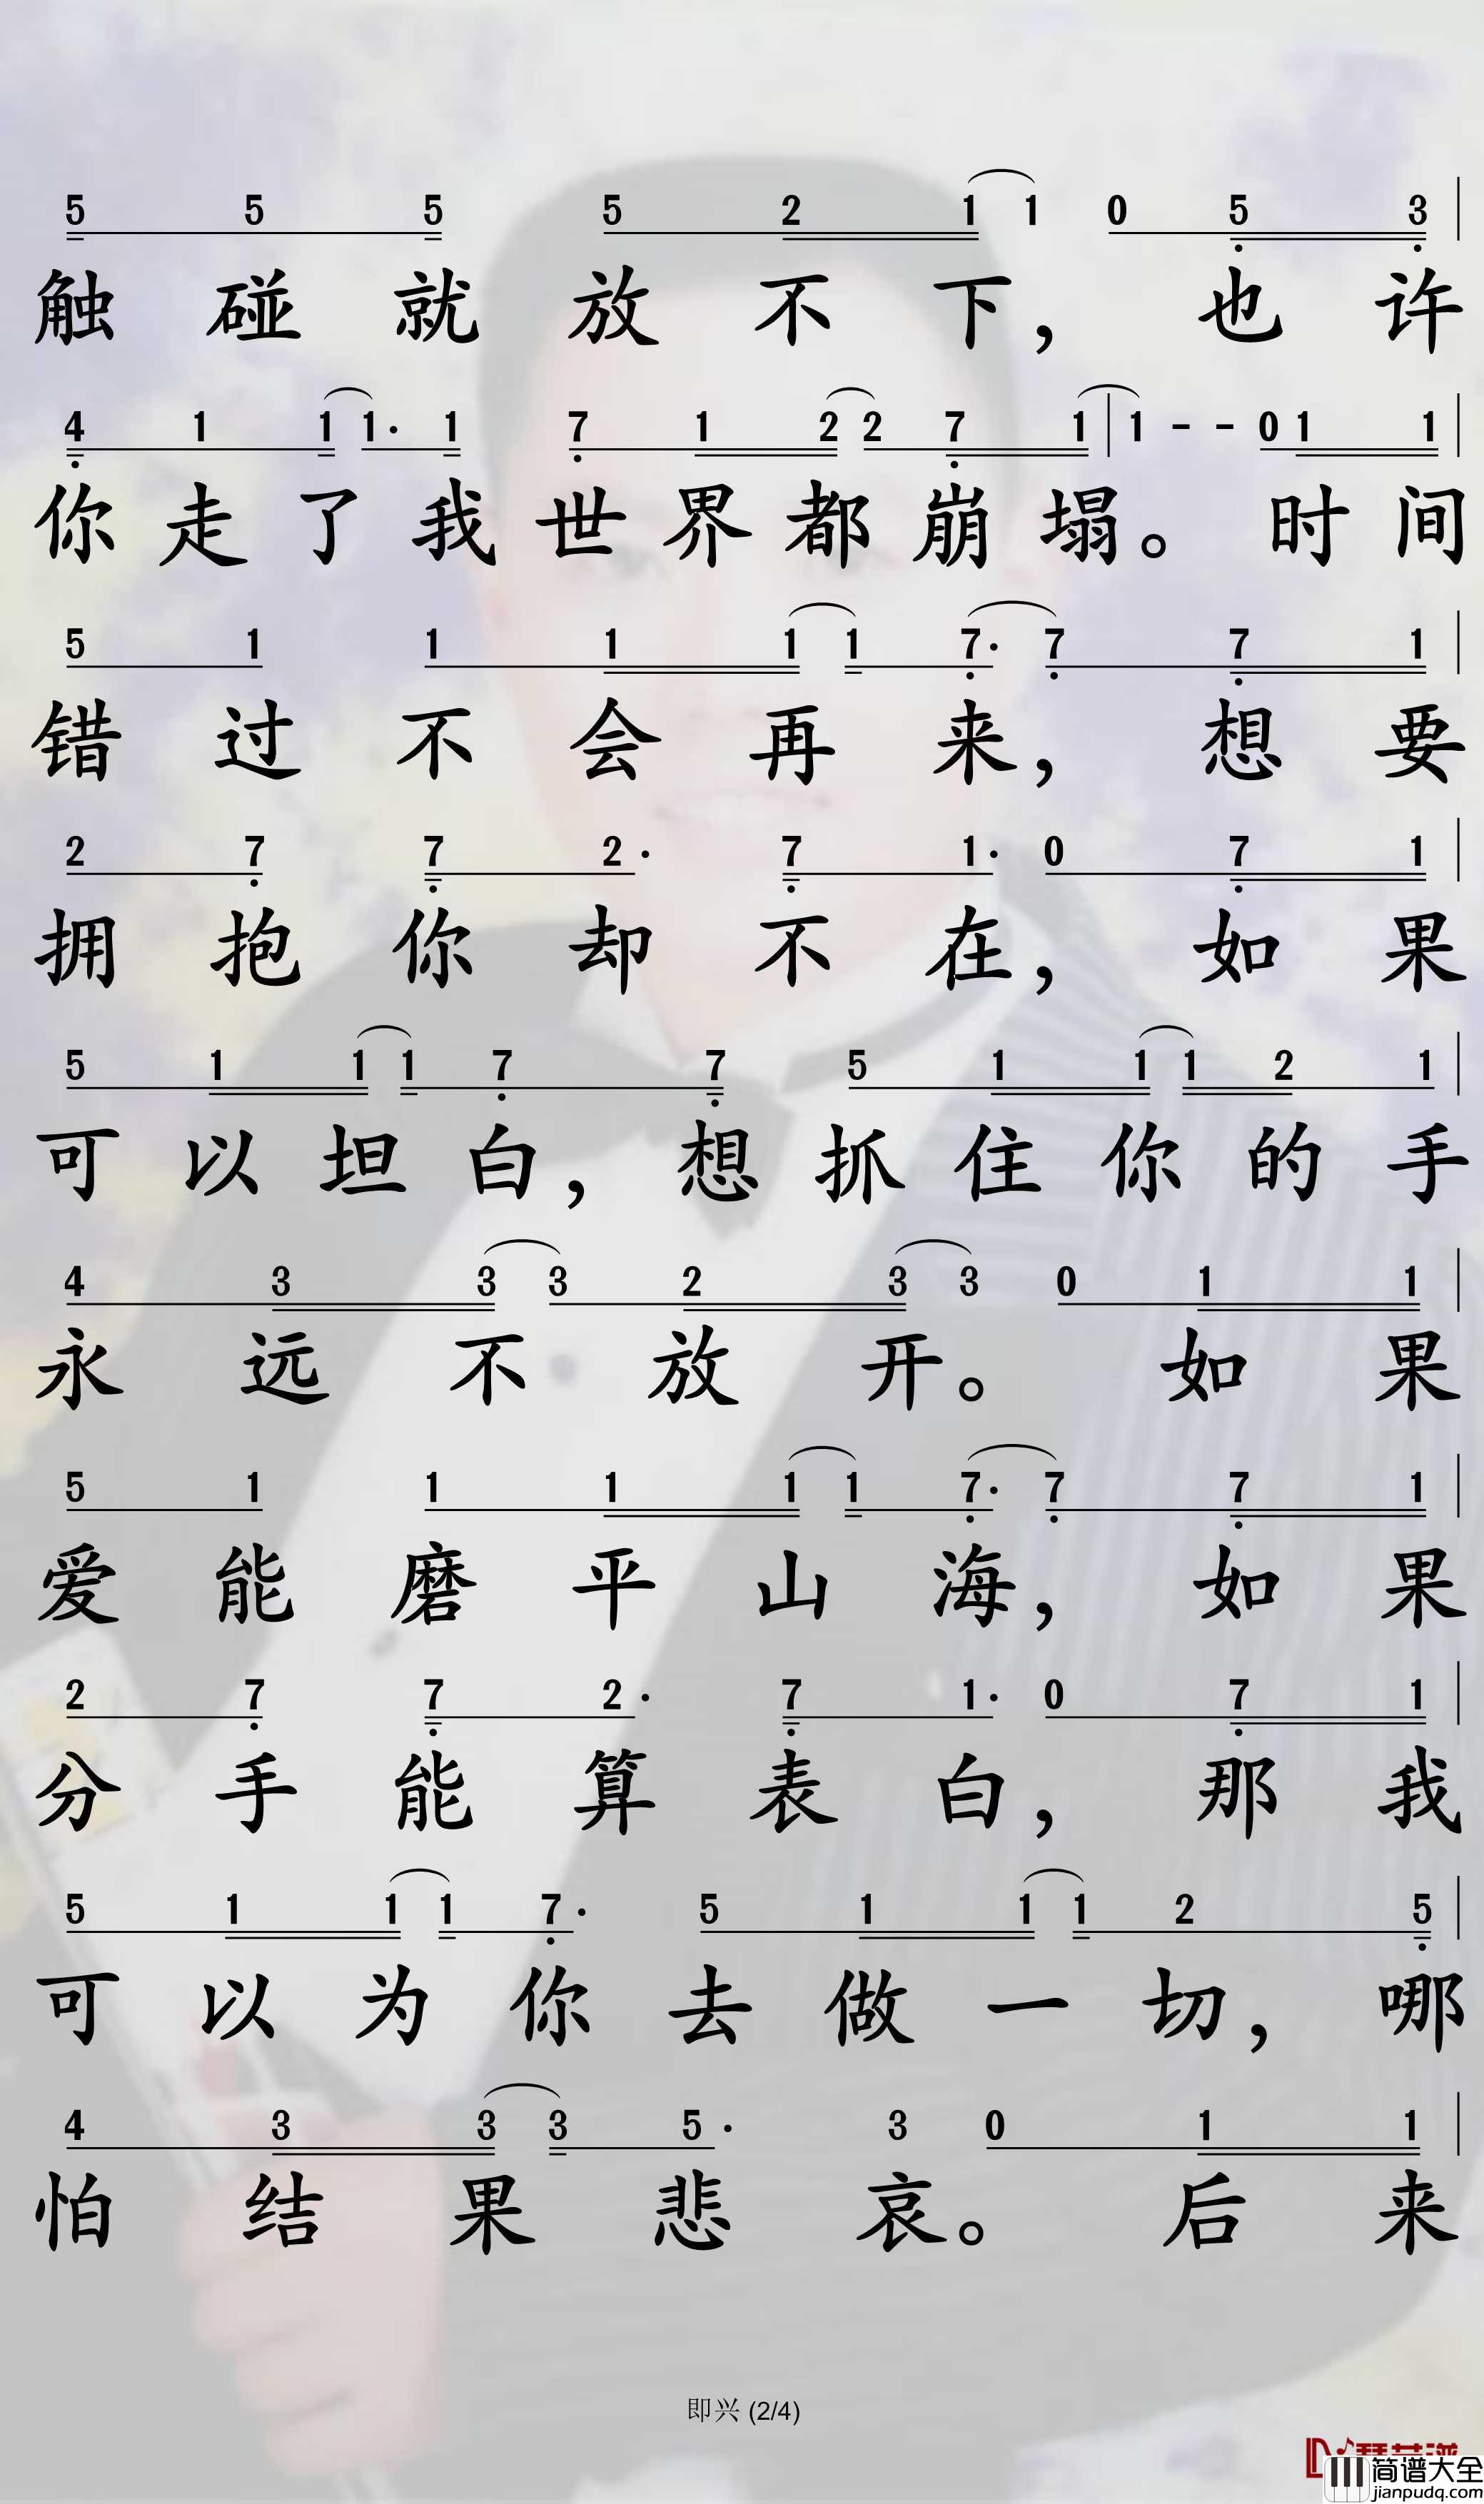 5 5 5 5 2 1 1 0 5 3
触碰就放不下，也许
4 1 1 1· 1 7 1 2 2 7 1 | 1 - - 0 1 1
你走了我世界都崩塌。时间
5 1 1 1 1 1 7· 7 7 1
错过不会再来，想要
2 7 7 2· 7 1· 0 7 1
拥抱你却不在，如果
5 1 1 1 7 7 5 1 1 1 2 1
可以坦白，想抓住你的手
4 3 3 3 2 3 3 0 1 1
永远不放开。如果
5 1 1 1 1 1 7· 7 7 1
爱能磨平山海，如果
2 7 7 2· 7 1· 0 7 1
分手能算表白，那我
5 1 1 1 7· 5 1 1 1 2 5
可以为你去做一切，哪
4 3 3 3 5· 3 0 1 1
怕结果悲哀。后来
即兴 (2/4)
简谱大全
jianpudq.com